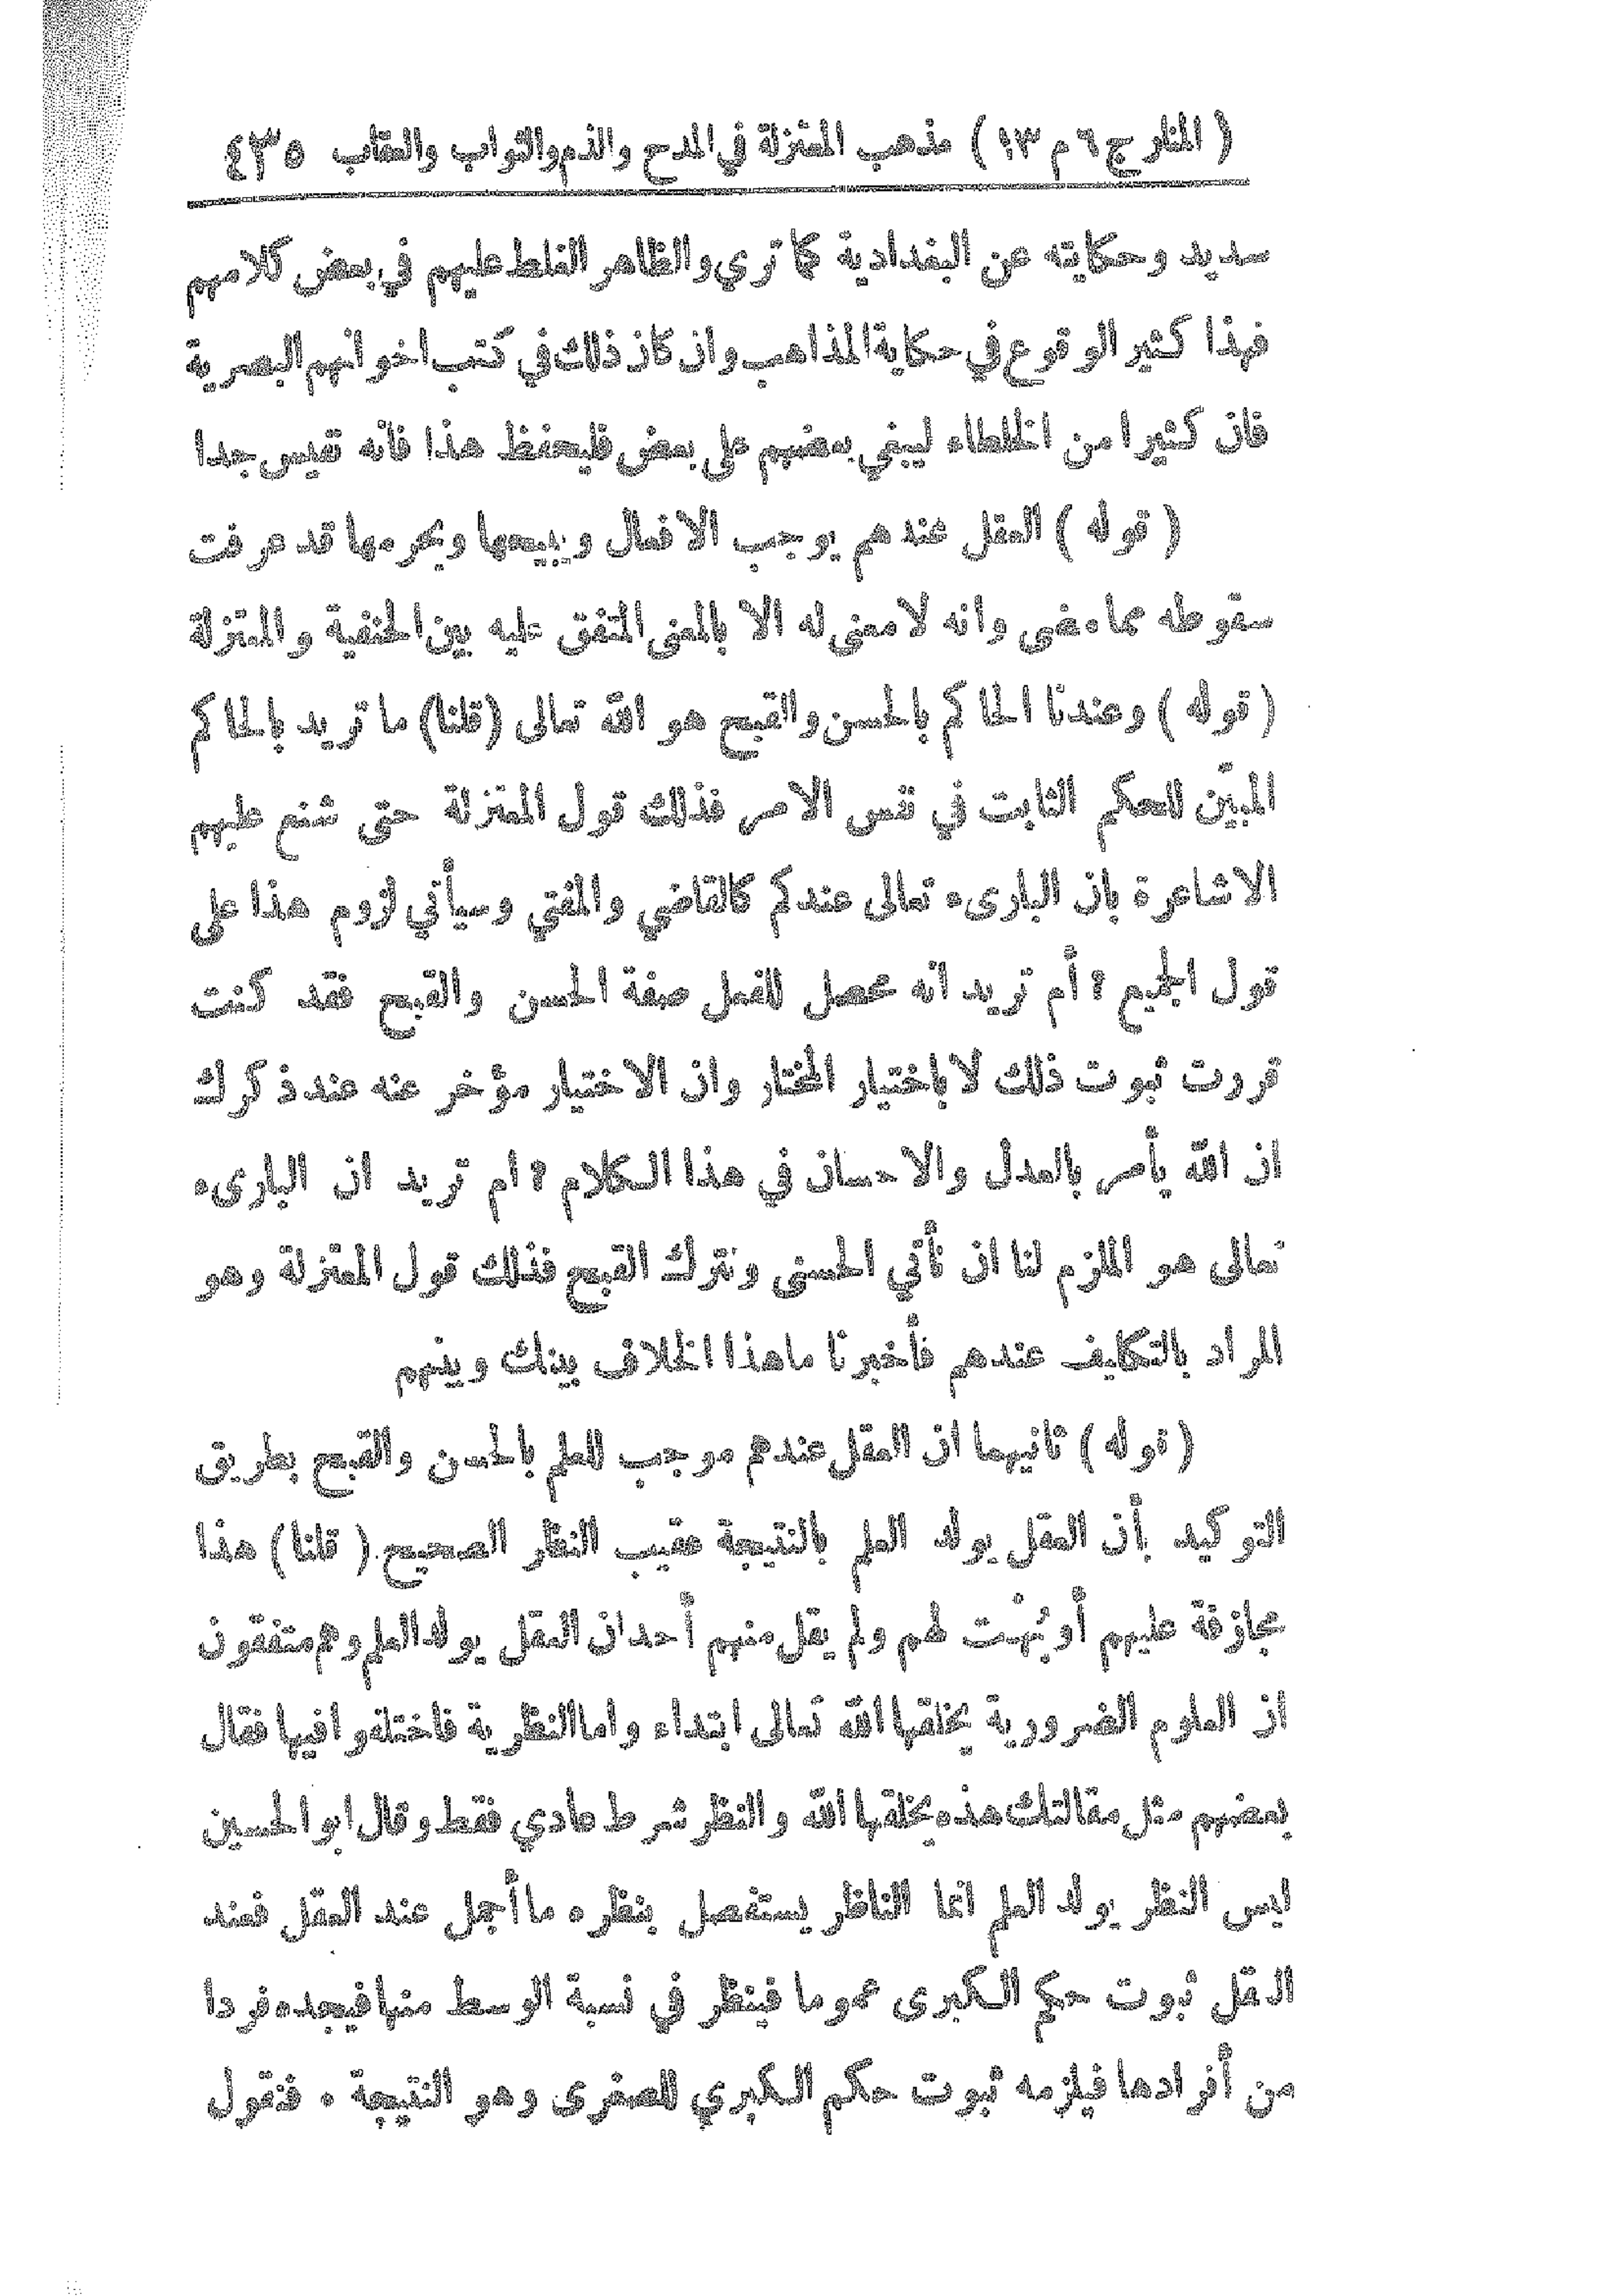 ( المنار ج ٦ م ١٣ ) مذهب المعتزلة في المدح والذم والثواب والعقاب ٤٣٥
سديد وحكايته عن البغدادية كما ترى والظاهر الغلط عليهم في بعض كلامهم
فهذا كثير الوقوع في حكاية المذاهب وان كان ذلك في كتب اخوانهم البصرية
فان كثيرا من الخلطاء ليبغي بعضهم على بعض فليحفظ هذا فانه نفيس جدا
( قوله ) العقل عندهم يوجب الافعال ويبيحها ويحرمها قد عرفت
سقوطه مما مضى وانه لا معنى له الا بالمعنى المتفق عليه بين الحنفية والمعتزلة
( قوله ) وعندنا الحاكم بالحسن والقبح هو الله تعالى (قلنا) ما تريد بالحاكم
المبيّن للحكم الثابت في نفس الامر فذلك قول المعتزلة حتى شنع عليهم
الاشاعرة بان البارىء تعالى عندكم كالقاضي والمفتي وسيأتي لزوم هذا على
قول الجميع ? أم تريد انه محصل للفعل صفة الحسن والقبح فقد كنت
قررت ثبوت ذلك لا باختيار المختار وان الاختيار مؤخر عنه عند ذكرك
ان الله يأمر بالعدل والاحسان في هذا الكلام ? ام تريد ان البارىء
تعالى هو الملزم لنا ان نأتي الحسنى ونترك القبيح فذلك قول المعتزلة وهو
المراد بالتكليف عندهم فأخبرنا ما هذا الخلاف بينك وبينهم
( قوله ) ثانيهما ان العقل عندهم موجب للعلم بالحسن والقبح بطريق
التوكيد بأن العقل يولد العلم بالنتيجة عقيب النظر الصحيح ( قلنا ) هذا
مجازفة عليهم أو بُهْت لهم ولم يقل منهم أحد ان العقل يولد العلم وهم متفقون
ان العلوم الضرورية يخلقها الله تعالى ابتداء واما النظرية فاختلفوا فيها فقال
بعضهم مثل مقالتك هذه يخلقها الله والنظر شرط عادي فقط وقال ابو الحسين
ليس النظر يولد العلم انما الناظر يستفصل بنظره ما أجمل عند العقل فعند
العقل ثبوت حكم الكبرى عموما فينظر في نسبة الوسط منها فيجده فردا
من أفرادها فيلزمه ثبوت حكم الكبري للصغرى وهو النتيجة . فنقول